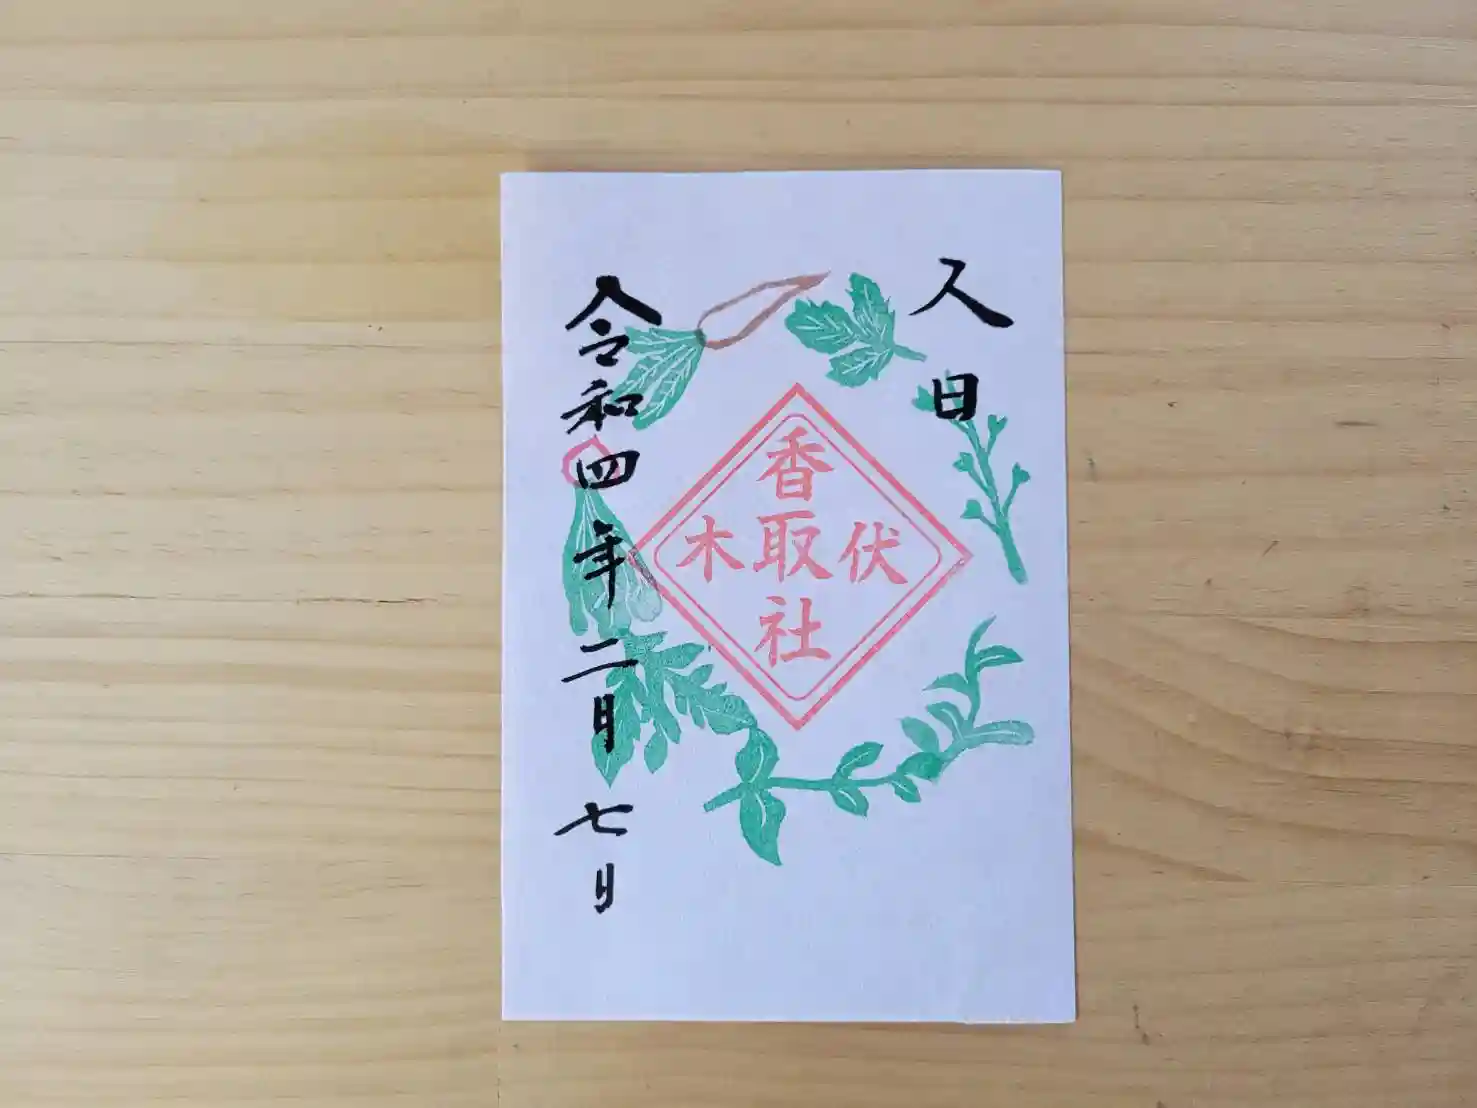 人日
香取社
伏木
令和四年二月七日